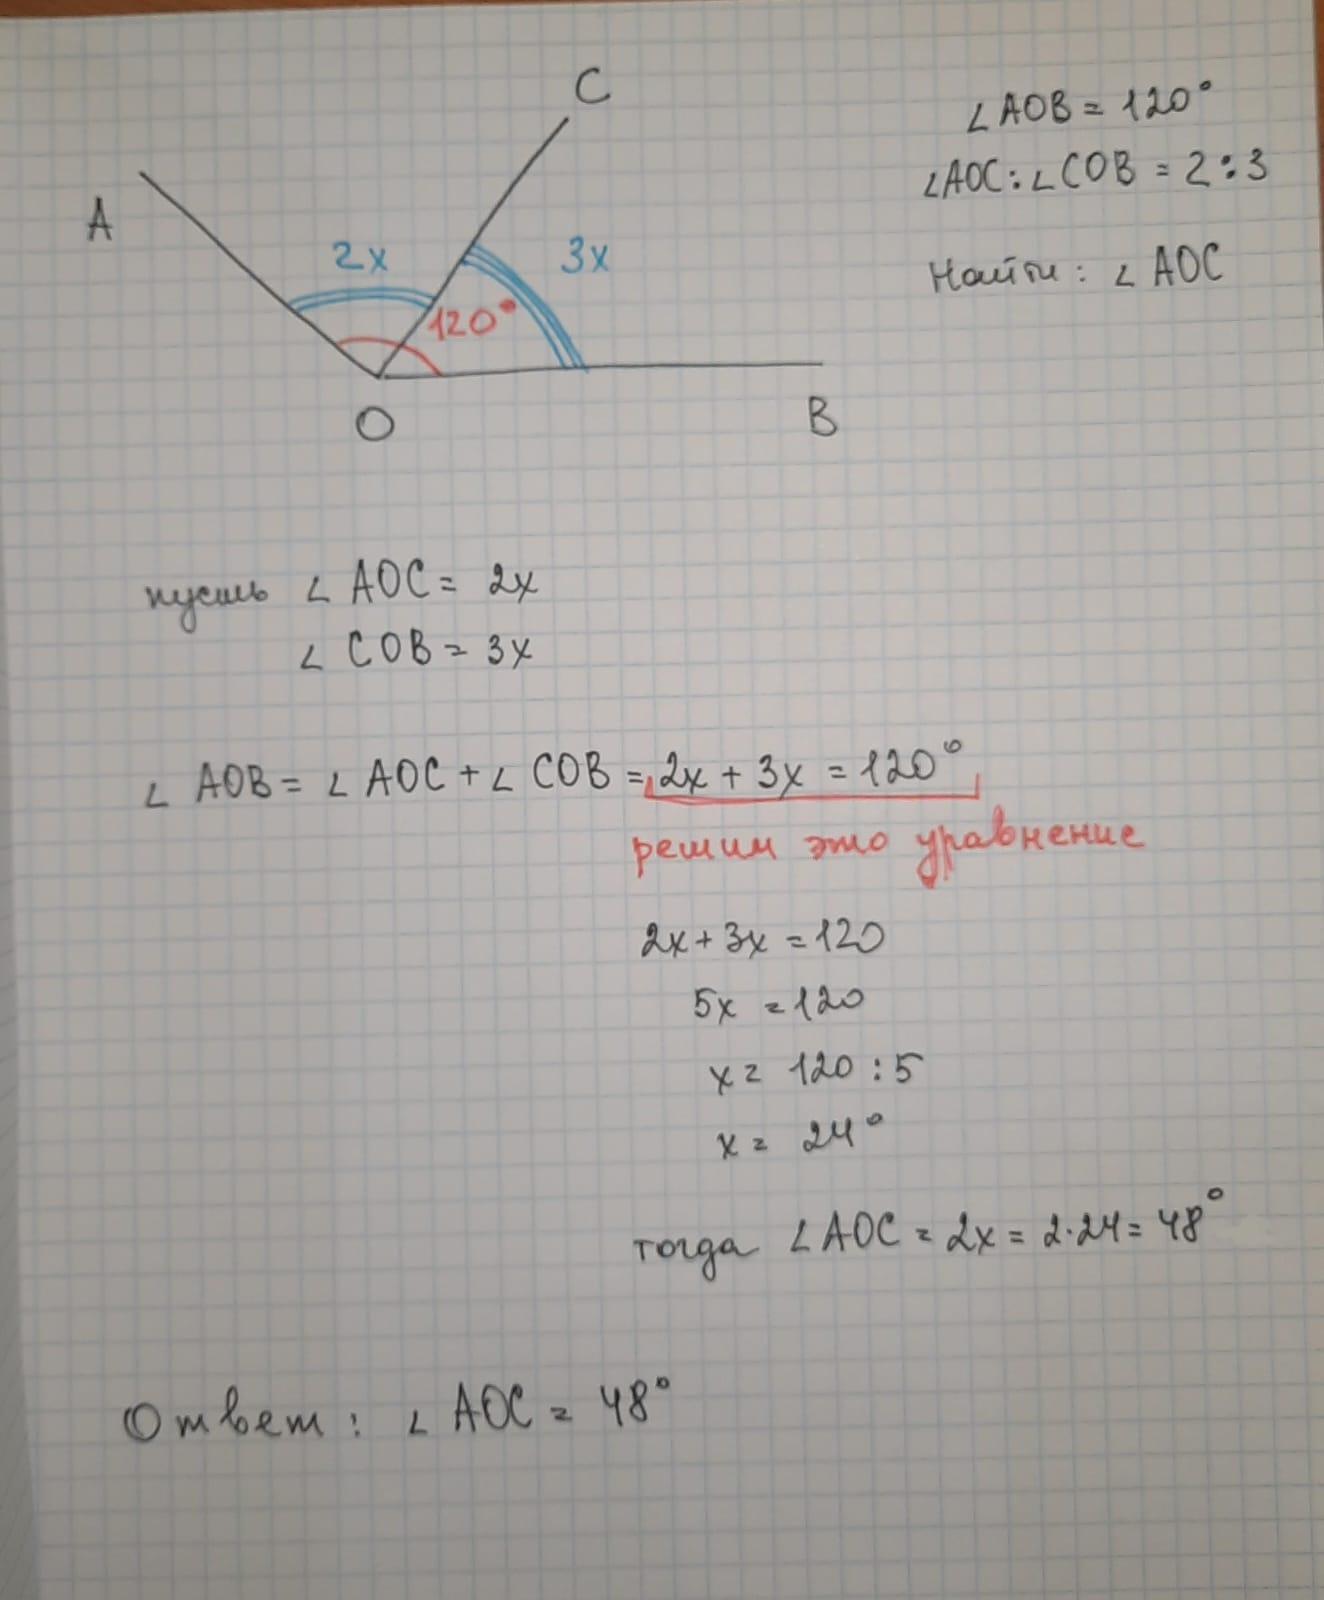 C
∠AOB = 120°
∠AOC : ∠COB = 2 : 3
A
2x
3x
Найти : ∠ AOC
120°
O
B
пусть ∠ AOC = 2x
∠ COB = 3x
∠ AOB = ∠ AOC + ∠ COB = 2x + 3x = 120°
решим это уравнение
2x + 3x = 120
5x = 120
x = 120 : 5
x = 24°
тогда ∠AOC = 2x = 2·24 = 48°
Ответ : ∠ AOC = 48°